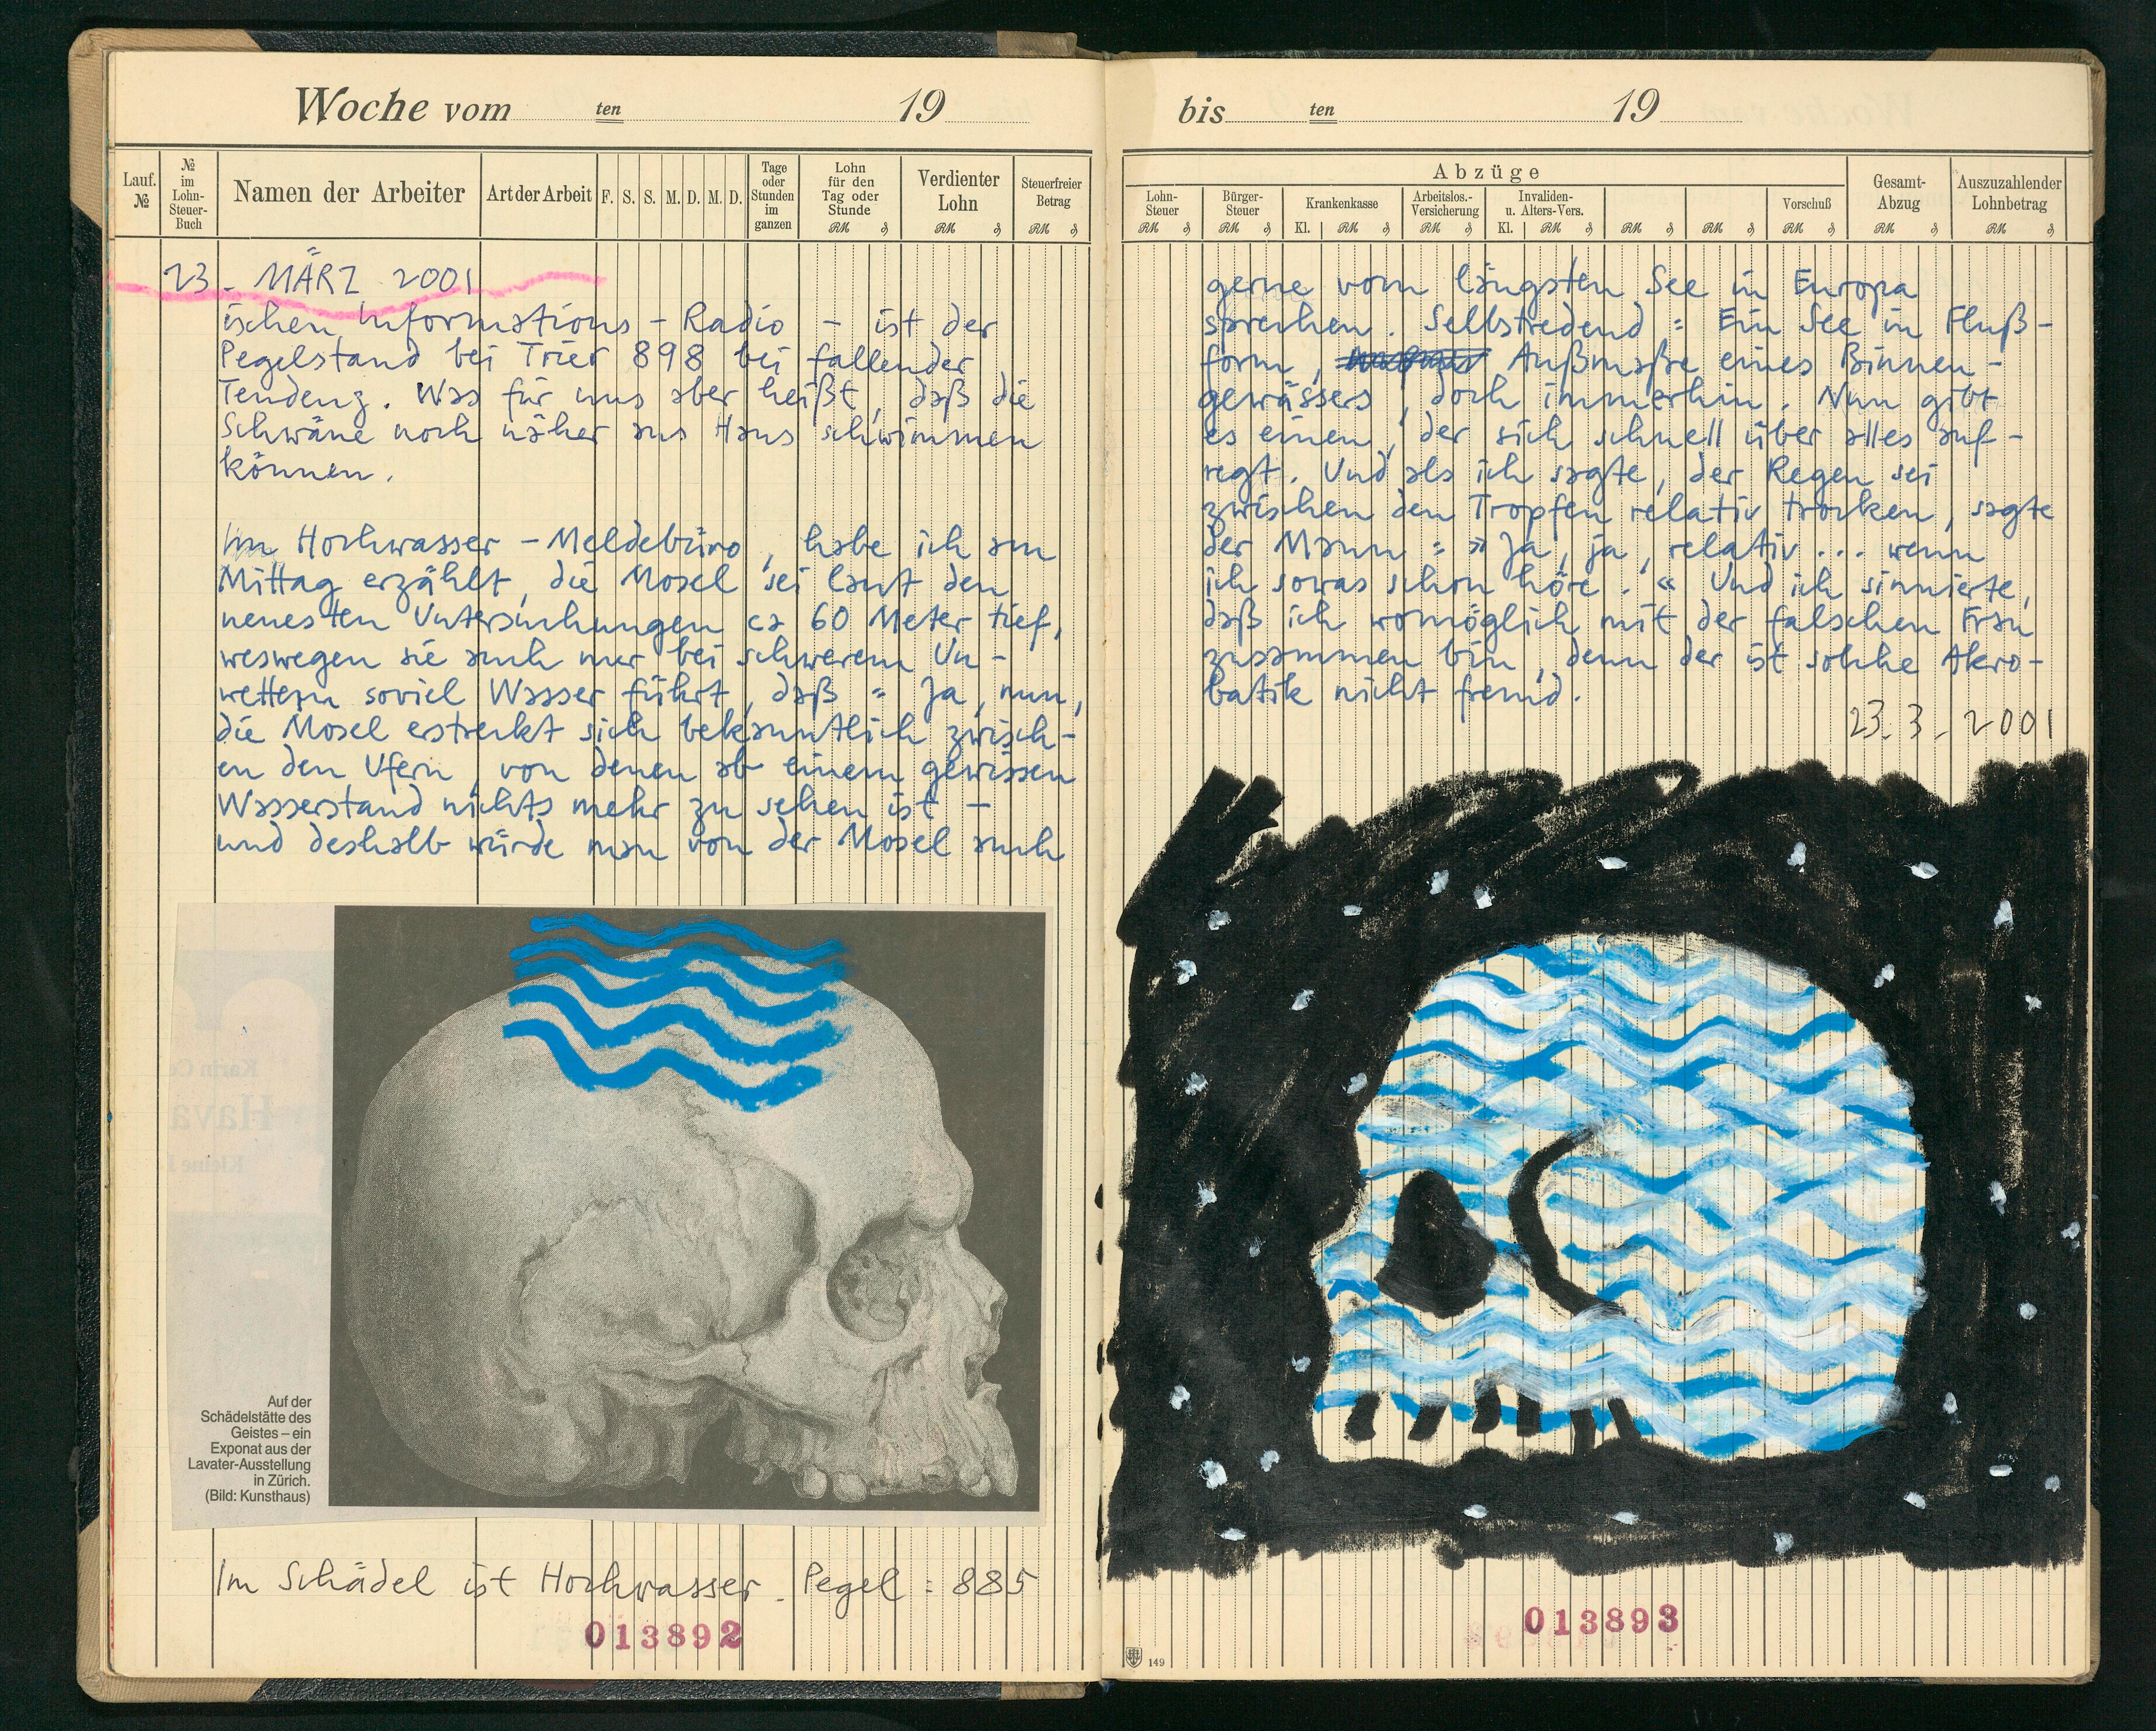 Woche vom ten 19
Lauf. №
№ im Lohn-Steuer-Buch
Namen der Arbeiter
Art der Arbeit
F. S. S. M. D. M. D.
Tage oder Stunden im ganzen
Lohn für den Tag oder Stunde
RM ₰
Verdienter Lohn
RM ₰
Steuerfreier Betrag
RM ₰
23. MÄRZ 2001
ischen Informations-Radio – ist der
Pegelstand bei Trier 898 bei fallender
Tendenz. Was für uns aber heißt, daß die
Schwäne noch näher ans Haus schwimmen
können.
Im Hochwasser-Meldebüro, habe ich am
Mittag erzählt, die Mosel sei laut den
neuesten Untersuchungen ca 60 Meter tief,
weswegen sie auch nur bei schwerem Un-
wettern soviel Wasser führt, daß = Ja, nun,
die Mosel erstreckt sich bekanntlich zwisch-
en den Ufern, von denen ab einem gewissen
Wasserstand nichts mehr zu sehen ist –
und deshalb würde man von der Mosel auch
Karin C
Hava
Kleine
Auf der
Schädelstätte des
Geistes – ein
Exponat aus der
Lavater-Ausstellung
in Zürich.
(Bild: Kunsthaus)
Im Schädel ist Hochwasser. Pegel: 885
013892
bis ten 19
Abzüge
Lohn-Steuer
RM ₰
Bürger-Steuer
RM ₰
Krankenkasse
Kl. RM ₰
Arbeitslos.-Versicherung
RM ₰
Invaliden- u. Alters-Vers.
Kl. RM ₰
RM ₰
RM ₰
Vorschuß
RM ₰
Gesamt-Abzug
RM ₰
Auszuzahlender Lohnbetrag
RM ₰
gerne vom längsten See in Europa
sprechen. Selbstredend: Ein See in Fluß-
form, Außmaße eines Binnen-
gewässers, doch immerhin. Nun gibt
es einen, der sich schnell über alles auf-
regt. Und als ich sagte, der Regen sei
zwischen den Tropfen relativ trocken, sagte
der Mann: »Ja, ja, relativ... wenn
ich sowas schon höre.« Und ich sinnierte,
daß ich womöglich mit der falschen Frau
zusammen bin, denn der ist solche Akro-
batik nicht fremd.
23.3. 2001
013893
149